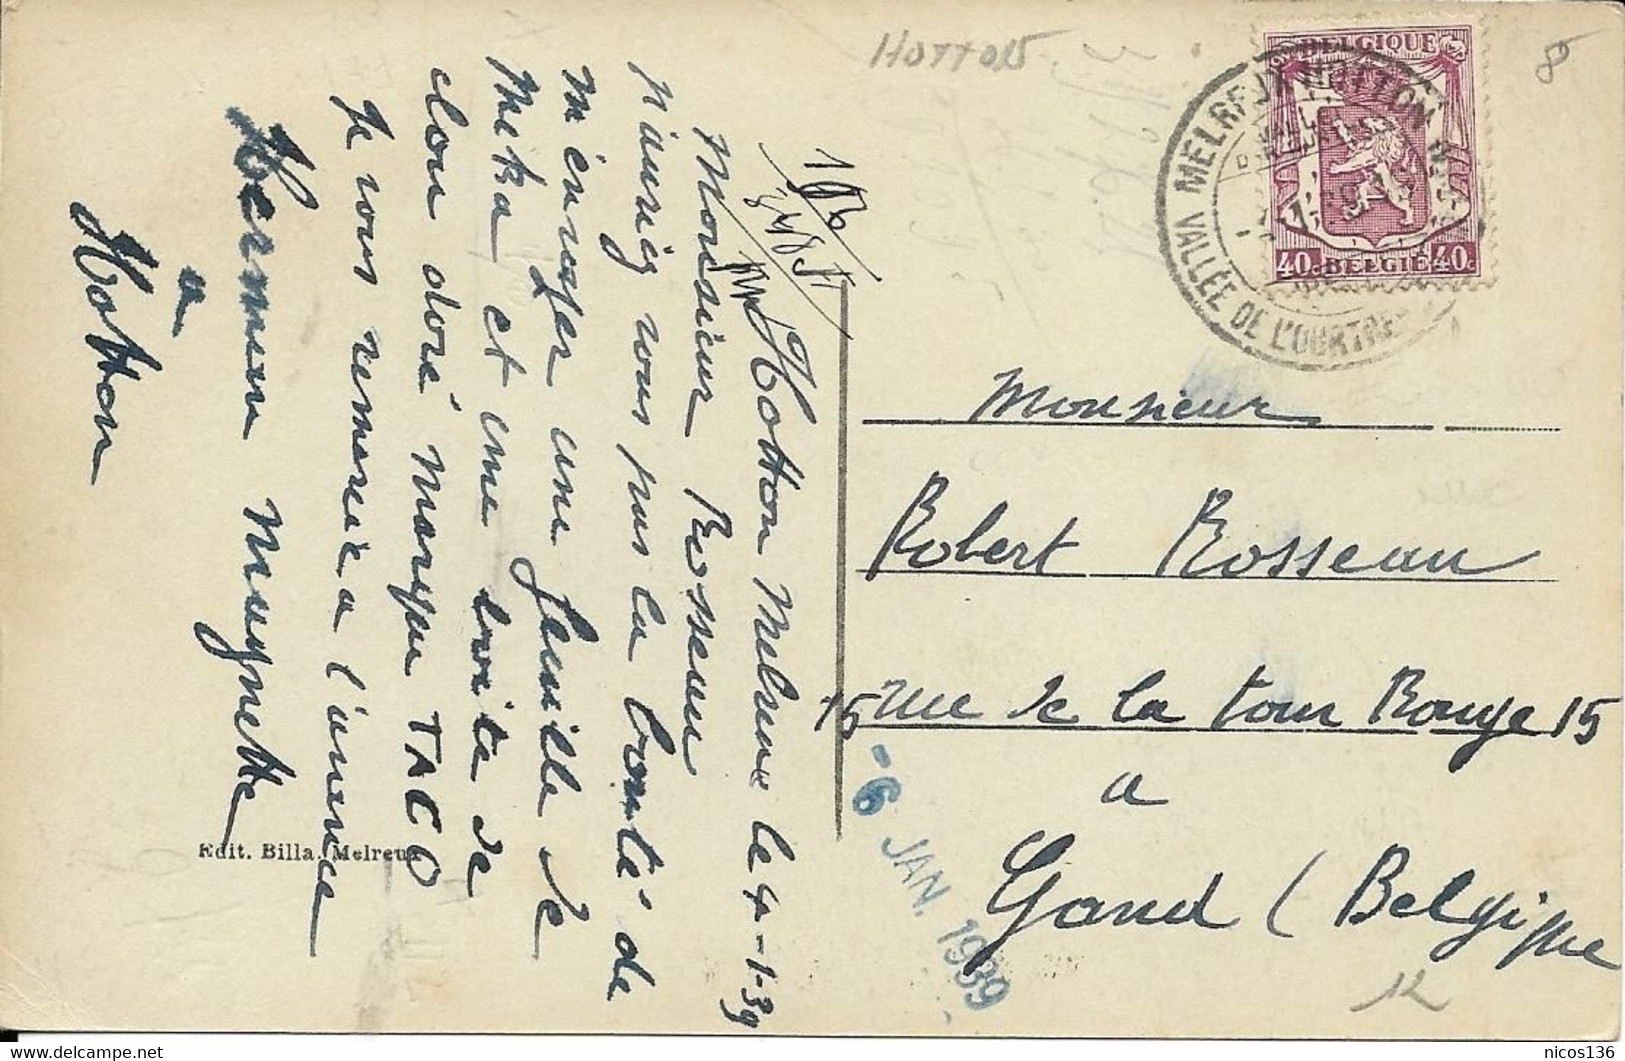 HOTTON
8
BELGIQUE
MELREUX HOTTON
VALLÉE DE L'OURTHE
40c BELGIE 40c
Hotton Melreux le 4-1-39
Monsieur Rosseau
n'auriez vous pas la bonté de
m'envoyer une feuille de
Meka et une boite de
clou doré marque TACO
Je vous remercie a l'avence
Herman Muygnette
à
Hotton
Edit. Billa. Melreux
Monsieur
Robert Rosseau
15 rue de la tour Rouge 15
a
Gand (Belgique
-6 JAN. 1939
12
nicos136